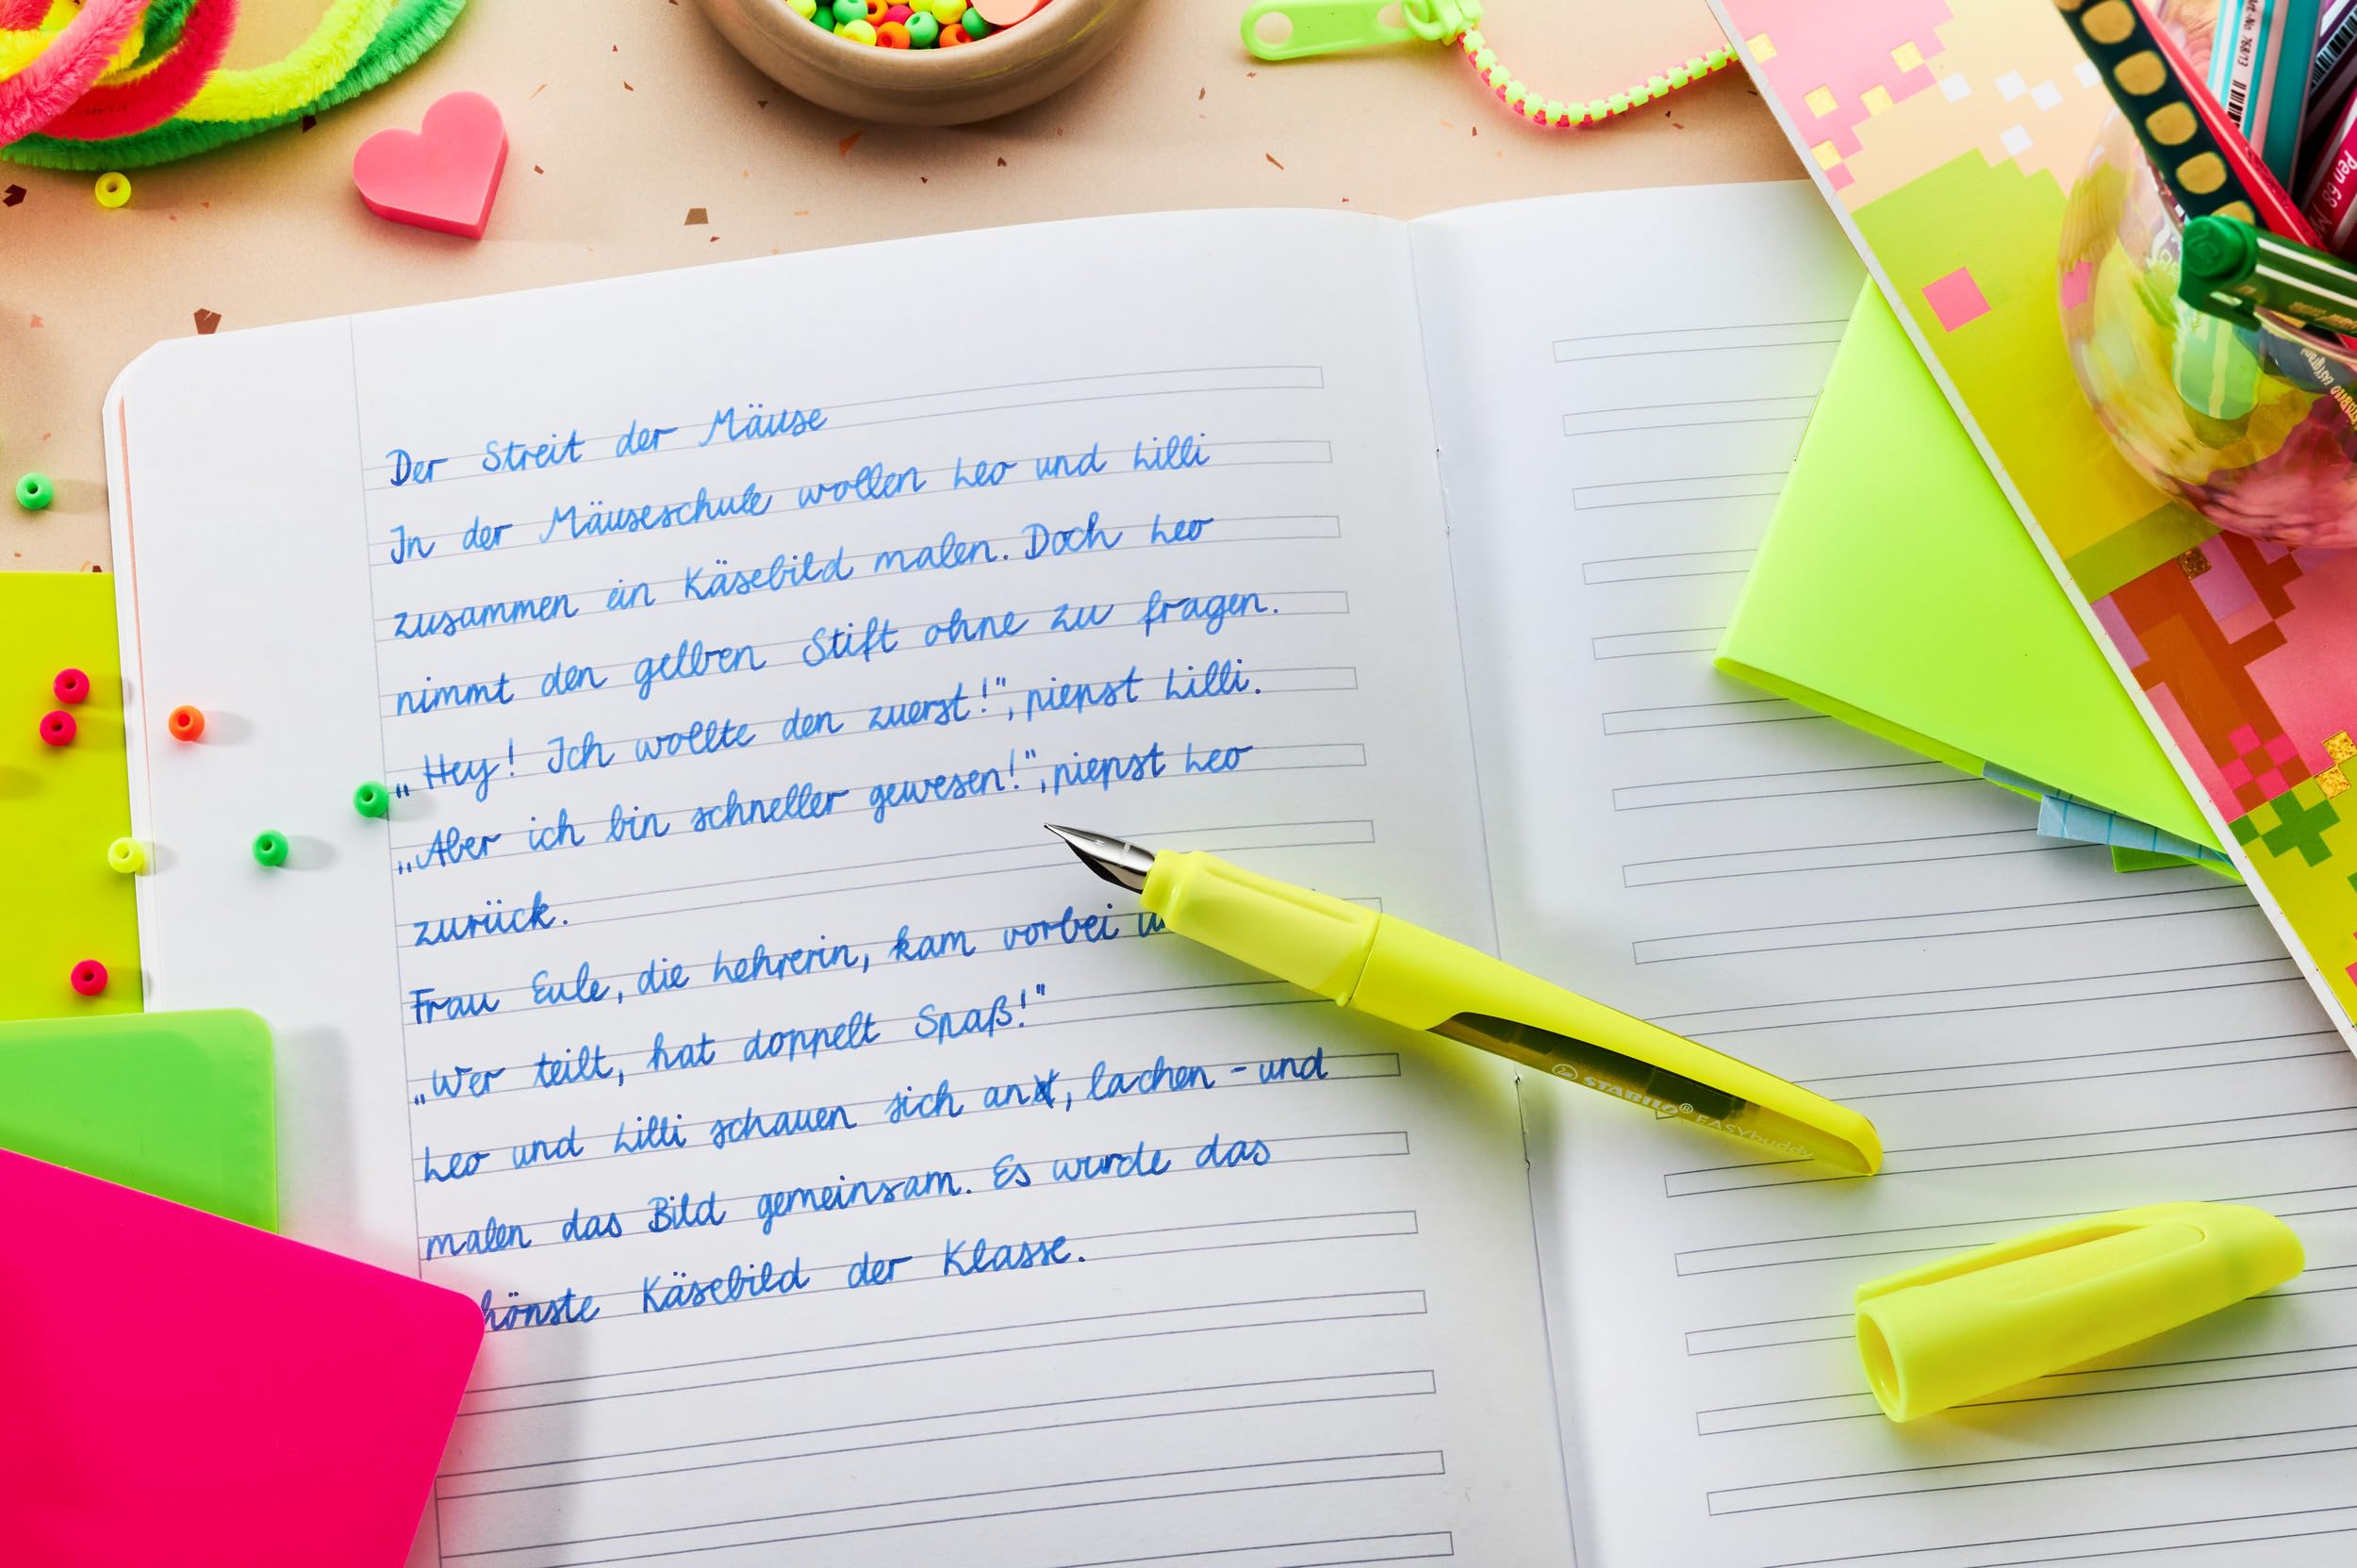 Der Streit der Mäuse
In der Mäuseschule wollen Leo und Lilli
zusammen ein Käsebild malen. Doch Leo
nimmt den gelben Stift ohne zu fragen.
„Hey! Ich wollte den zuerst!", piepst Lilli.
„Aber ich bin schneller gewesen!", piepst Leo
zurück.
Frau Eule, die Lehrerin, kam vorbei
„Wer teilt, hat doppelt Spaß!"
Leo und Lilli schauen sich an, lachen - und
malen das Bild gemeinsam. Es wurde das
hönste Käsebild der Klasse.
STABILO® EASYbuddy
Art.-No. 768/13
Pen 68